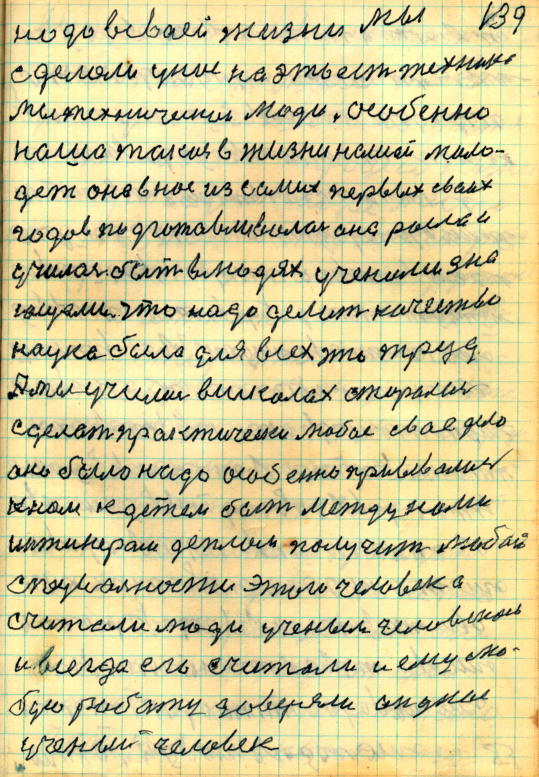 надо в своей жизни мы 139
сделали уже на это есть техник
мы технические люди, особенно
наша такая в жизни нашей моло-
деж она в нас из самих первых своих
годов подготавливалась она росла и
училась быт в людях учеными зна
ющими. Что надо делит качество
наука была для всех это труд
А мы учились в школах старались
сделат практически любое свое дело
оно было надо особенно прививалися
к нам к детем быт между нами
инжинерам деплом получит любой
специальности этого человека
считали люди ученым человеком
и всегда его считали и ему лю-
бую работу доверяли он у нас
ученый человек